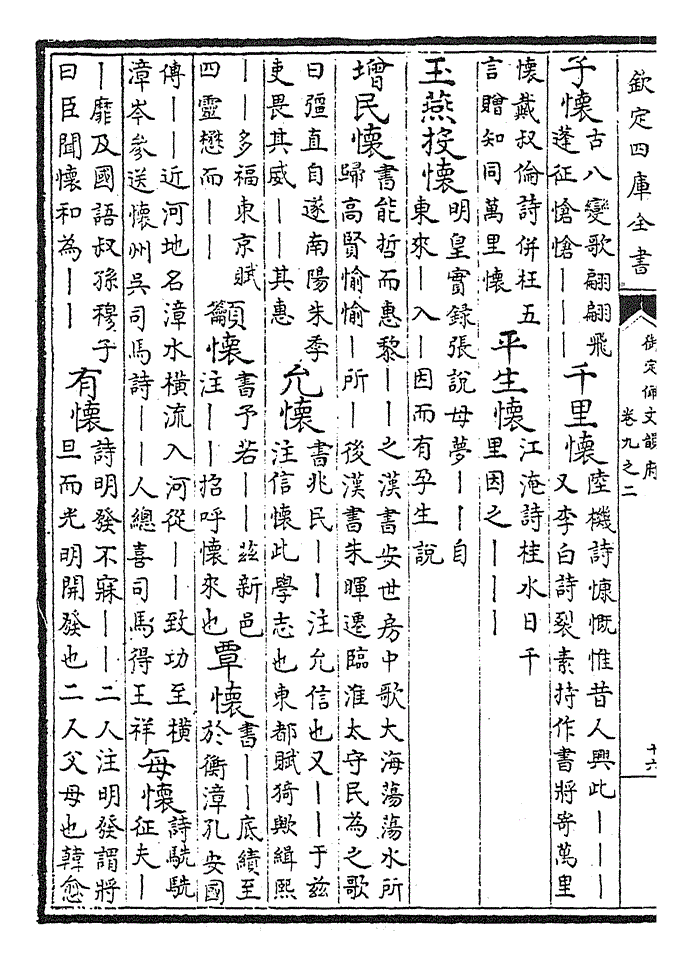 欽定四庫全書
御定佩文韻府
卷九之二
十六
子懷
古八變歌翩翩飛
蓬征愴愴丨丨丨
千里懷
陸機詩慷慨惟昔人興此丨丨丨
又李白詩裂素持作書將寄萬里
懷戴叔倫詩併枉五
言贈知同萬里懷
平生懷
江淹詩桂水日千
里因之丨丨丨
玉燕投懷
明皇實録張說母夢丨丨自
東來丨入丨因而有孕生說
增民懷
書能哲而惠黎丨丨之漢書安世房中歌大海蕩蕩水所
歸高賢愉愉丨所丨後漢書朱暉遷臨淮太守民為之歌
曰彊直自遂南陽朱季
吏畏其威丨丨其惠
允懷
書兆民丨丨注允信也又丨丨于兹
注信懷此學志也東都賦猗歟緝熙
丨丨多福東京賦
四靈懋而丨丨
籲懷
書予若丨丨兹新邑
注丨丨招呼懷來也
覃懷
書丨丨底績至
於衡漳孔安國
傳丨丨近河地名漳水橫流入河從丨丨致功至橫
漳岑參送懷州吳司馬詩丨丨人總喜司馬得王祥
每懷
詩駪駪
征夫丨
丨靡及國語叔孫穆子
曰臣聞懷和為丨丨
有懷
詩明發不寐丨丨二人注明發謂將
旦而光明開發也二人父母也韓愈